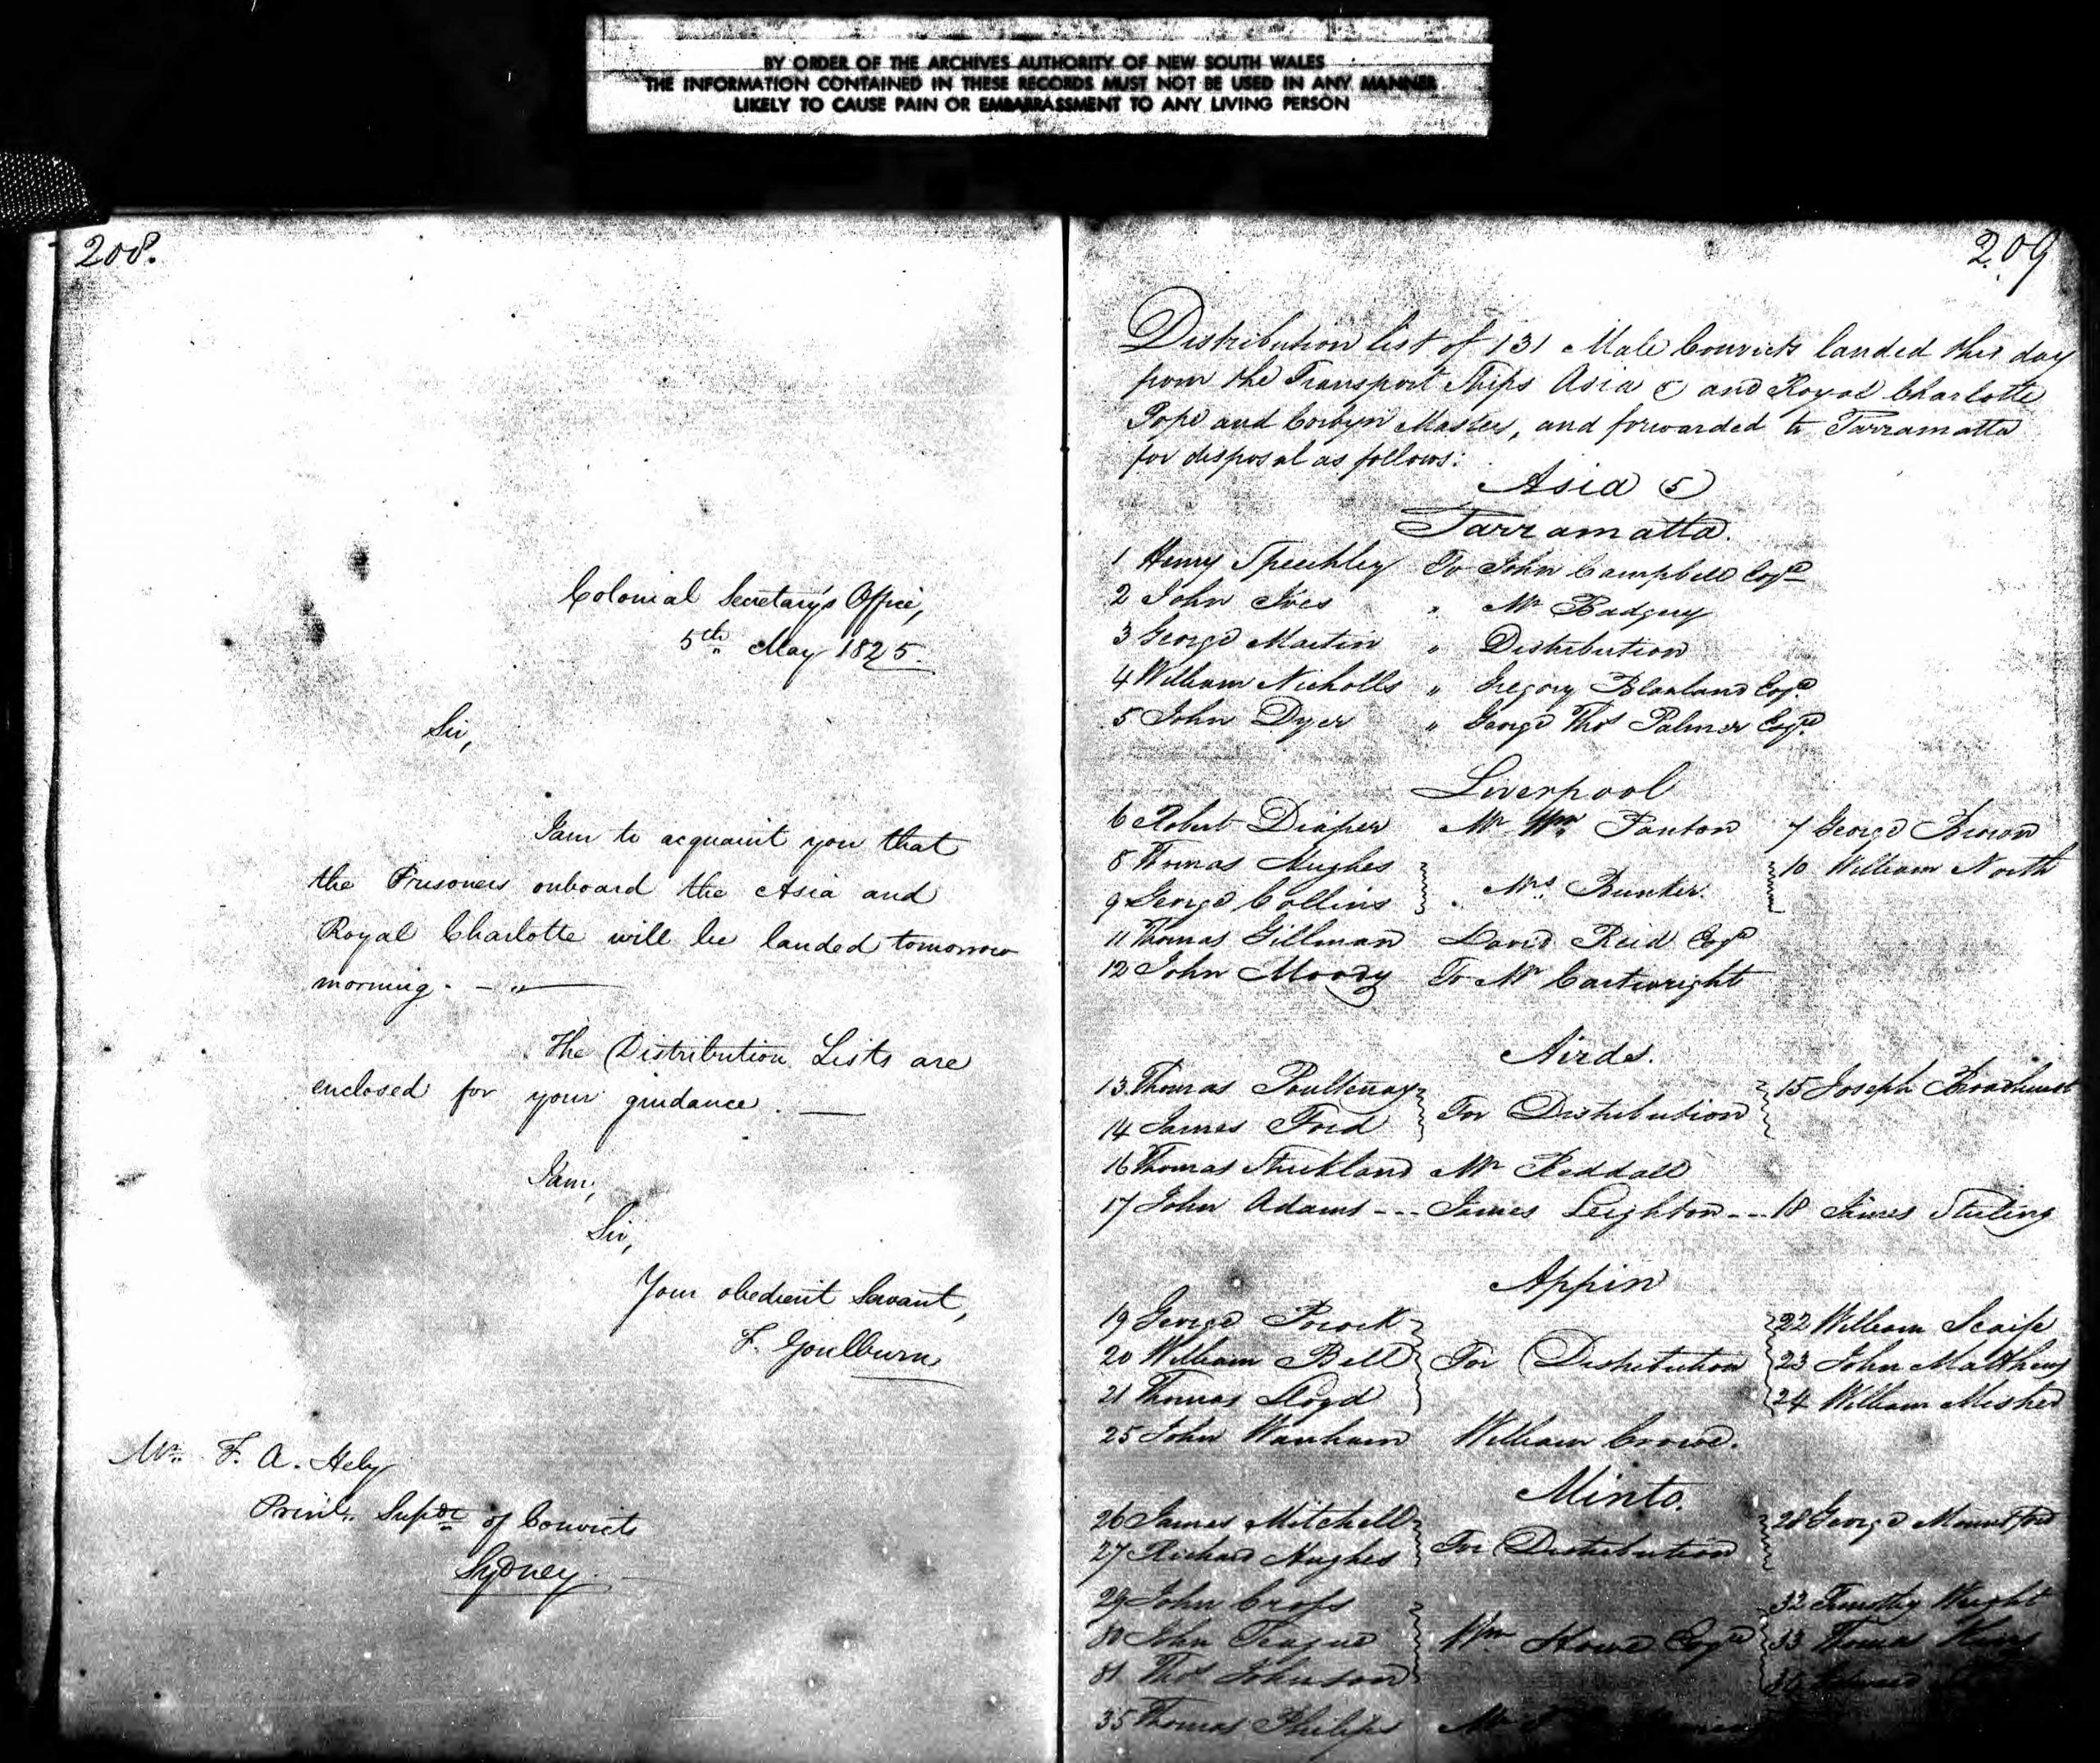 BY ORDER OF THE ARCHIVES AUTHORITY OF NEW SOUTH WALES
THE INFORMATION CONTAINED IN THESE RECORDS MUST NOT BE USED IN ANY MANNER
LIKELY TO CAUSE PAIN OR EMBARRASSMENT TO ANY LIVING PERSON
208.
Colonial Secretary's Office,
5th May 1825.
Sir,
I am to acquaint you that
the Prisoners onboard the Asia and
Royal Charlotte will be landed tomorrow
morning. - " —
The Distribution Lists are
enclosed for your guidance. —
I am,
Sir,
Your obedient Servant,
F. Goulburn
Mr. F. A. Hely
Prinl. Supdt of Convicts
Sydney.
209
Distribution list of 131 Male Convicts landed this day
from the Transport Ships Asia 5 and Royal Charlotte
Pope and Corbyn Masters, and forwarded to Parramatta
for disposal as follows:
Asia 5
Parramatta.
1 Henry Speechley To John Campbell Esqre
2 John Ives " Mr Badgery
3 George Martin " Distribution
4 William Nicholls " Gregory Blaxland Esqre
5 John Dyer " George Thos Palmer Esqre
Liverpool
6 Robert Draper Mr Wm Panton 7 George Brown
8 Thomas Hughes 10 William North
9 George Collins Mrs Bunker.
11 Thomas Gillman David Reid Esqre
12 John Moody To Mr Cartwright
Airds.
13 Thomas Poultenay 15 Joseph Broadhurst
14 James Ford For Distribution
16 Thomas Strickland Mr Reddall
17 John Adams --- James Leighton --- 18 James Sterling
Appin
19 George Pocock 22 William Scaife
20 William Bell For Distribution 23 John Matthews
21 Thomas Lloyd 24 William
25 John Wanham William Crowe.
Minto.
26 James Mitchell 28 George Mountford
27 Richard Hughes For Distribution
29 John Cross 32 Timothy Wright
30 John Teague Wm Howe Esqre 33 Thomas
31 Thos Johnson 34 Edward
35 Thomas Philips